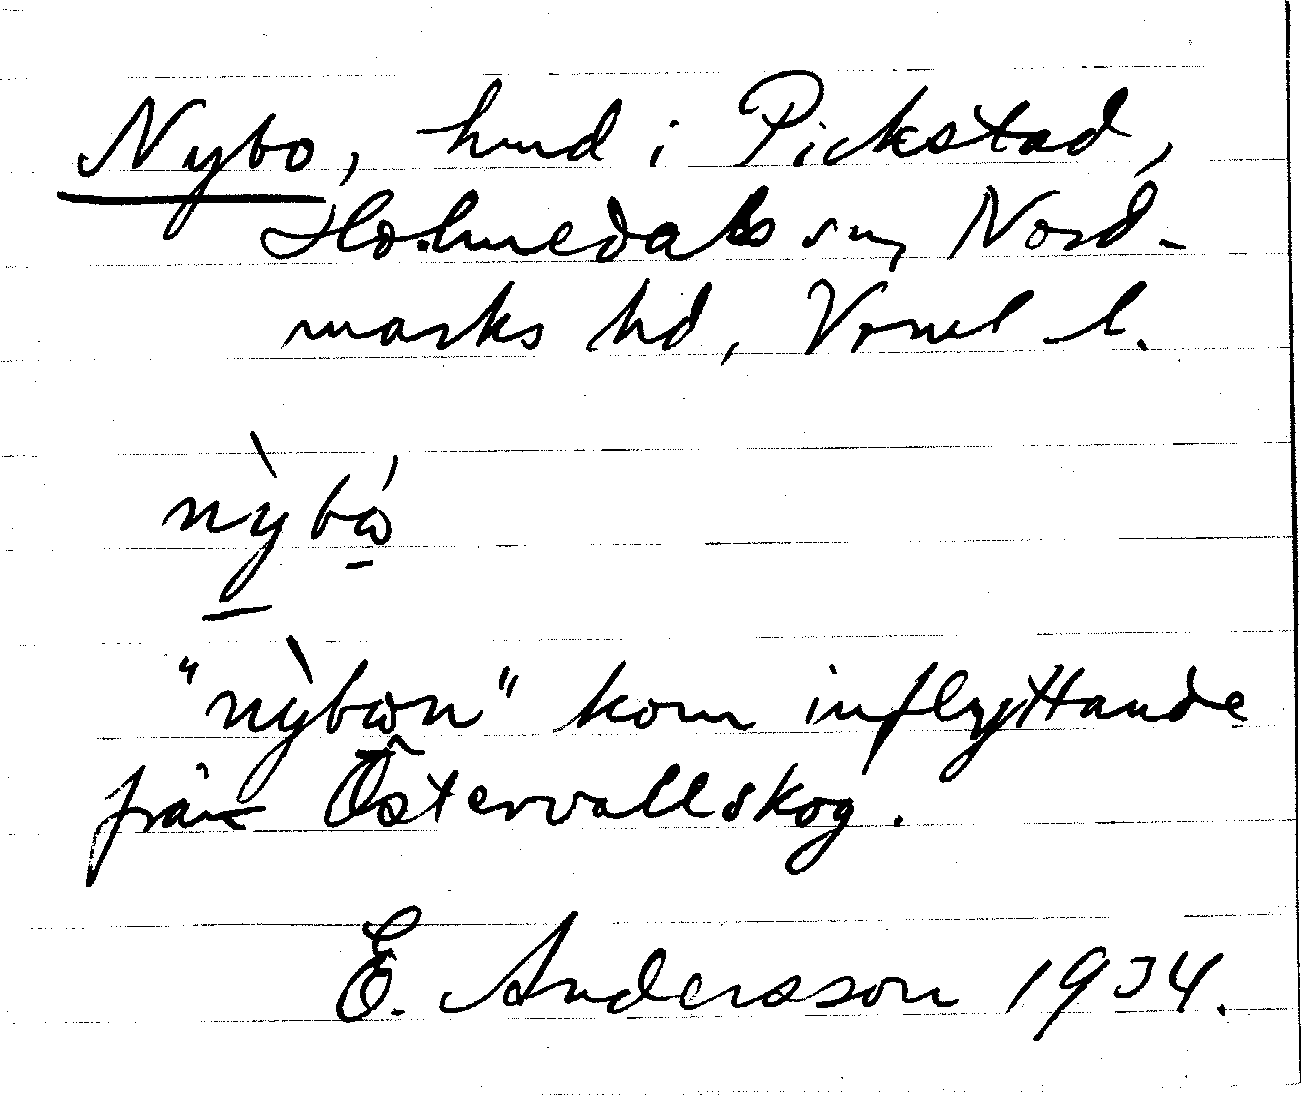 Nybo, hmd i Pickstad,
Holmedals sn, Nord-
marks hd, Vrml l.
nỳbώ
"nỳbωn" kom inflyttande
från Östervallskog.
E. Andersson 1934.